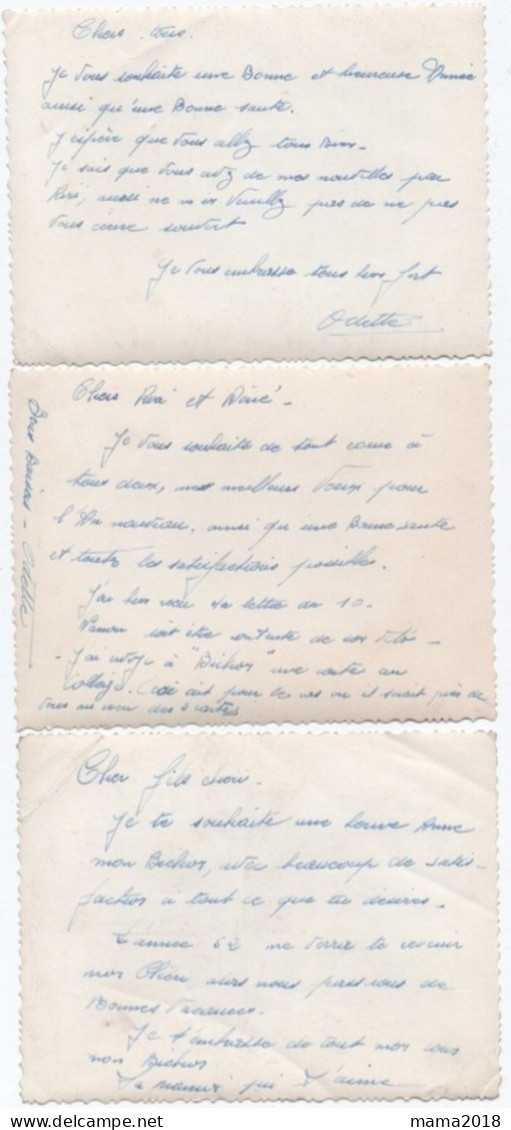 Chers tous.
Je vous souhaite une Bonne et heureuse Année
ainsi qu'une Bonne santé.
J'espère que vous allez tous Bien.
Je sais que vous avez de mes nouvelles par
Riri, aussi ne m'en veuillez pas de ne pas
vous écrire souvent
Je vous embrasse tous bien fort
Odette
Chers Riri et
Je vous souhaite de tout cœur à
tous deux, mes meilleurs vœux pour
l'An nouveau, ainsi qu'une Bonne santé
et toutes les satisfactions possibles.
J'ai bien reçu ta lettre du 10-
doit être contente de son
J'ai envoyé à "Bichon" une carte au
collège. Ceci est pour le cas où il serait près de
vous au reçu des 2 cartes
Bons Baisers - Odette
Cher fils chéri.
Je te souhaite une bonne Année
mon Bichon, beaucoup de satis-
faction à tout ce que tu désires.
L'année 52 me verra te revoir
mon Chéri, alors nous passerons de
Bonnes Vacances.
Je t'embrasse de tout mon cœur
mon Bichon
Ta maman qui t'aime
mama2018